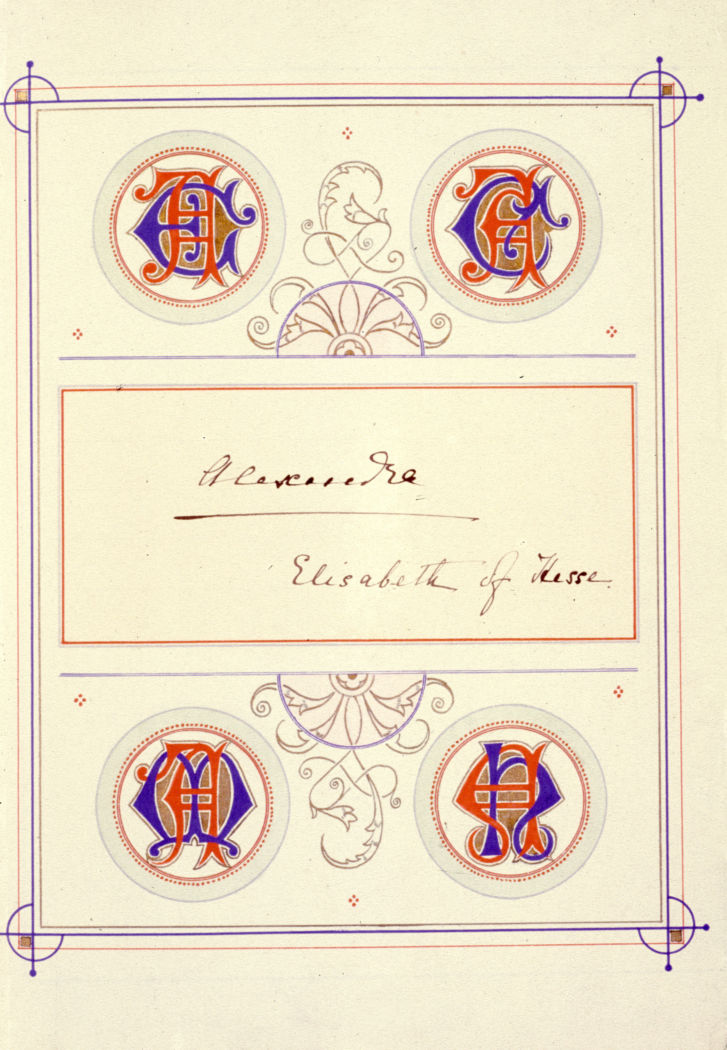 Alexandra
Elisabeth of Hesse